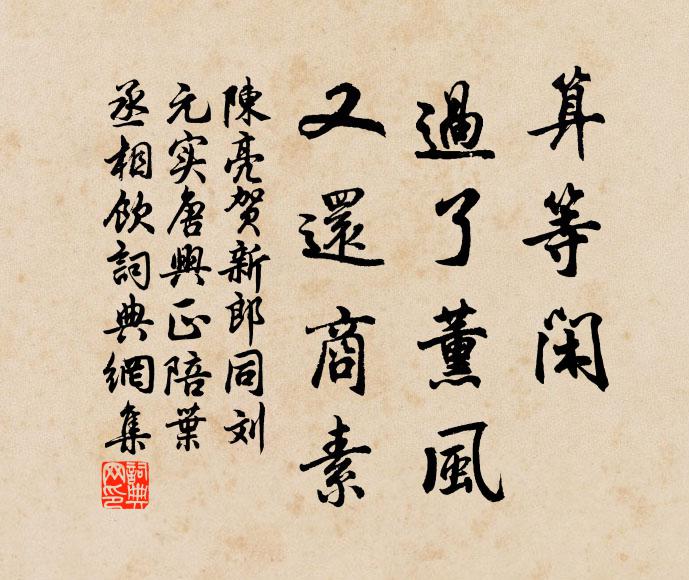 算等閑
過了薰風
又還商素
陳亮賀新郎同刘
元实唐興正陪葉
丞相飲詞典網集
詞典网印